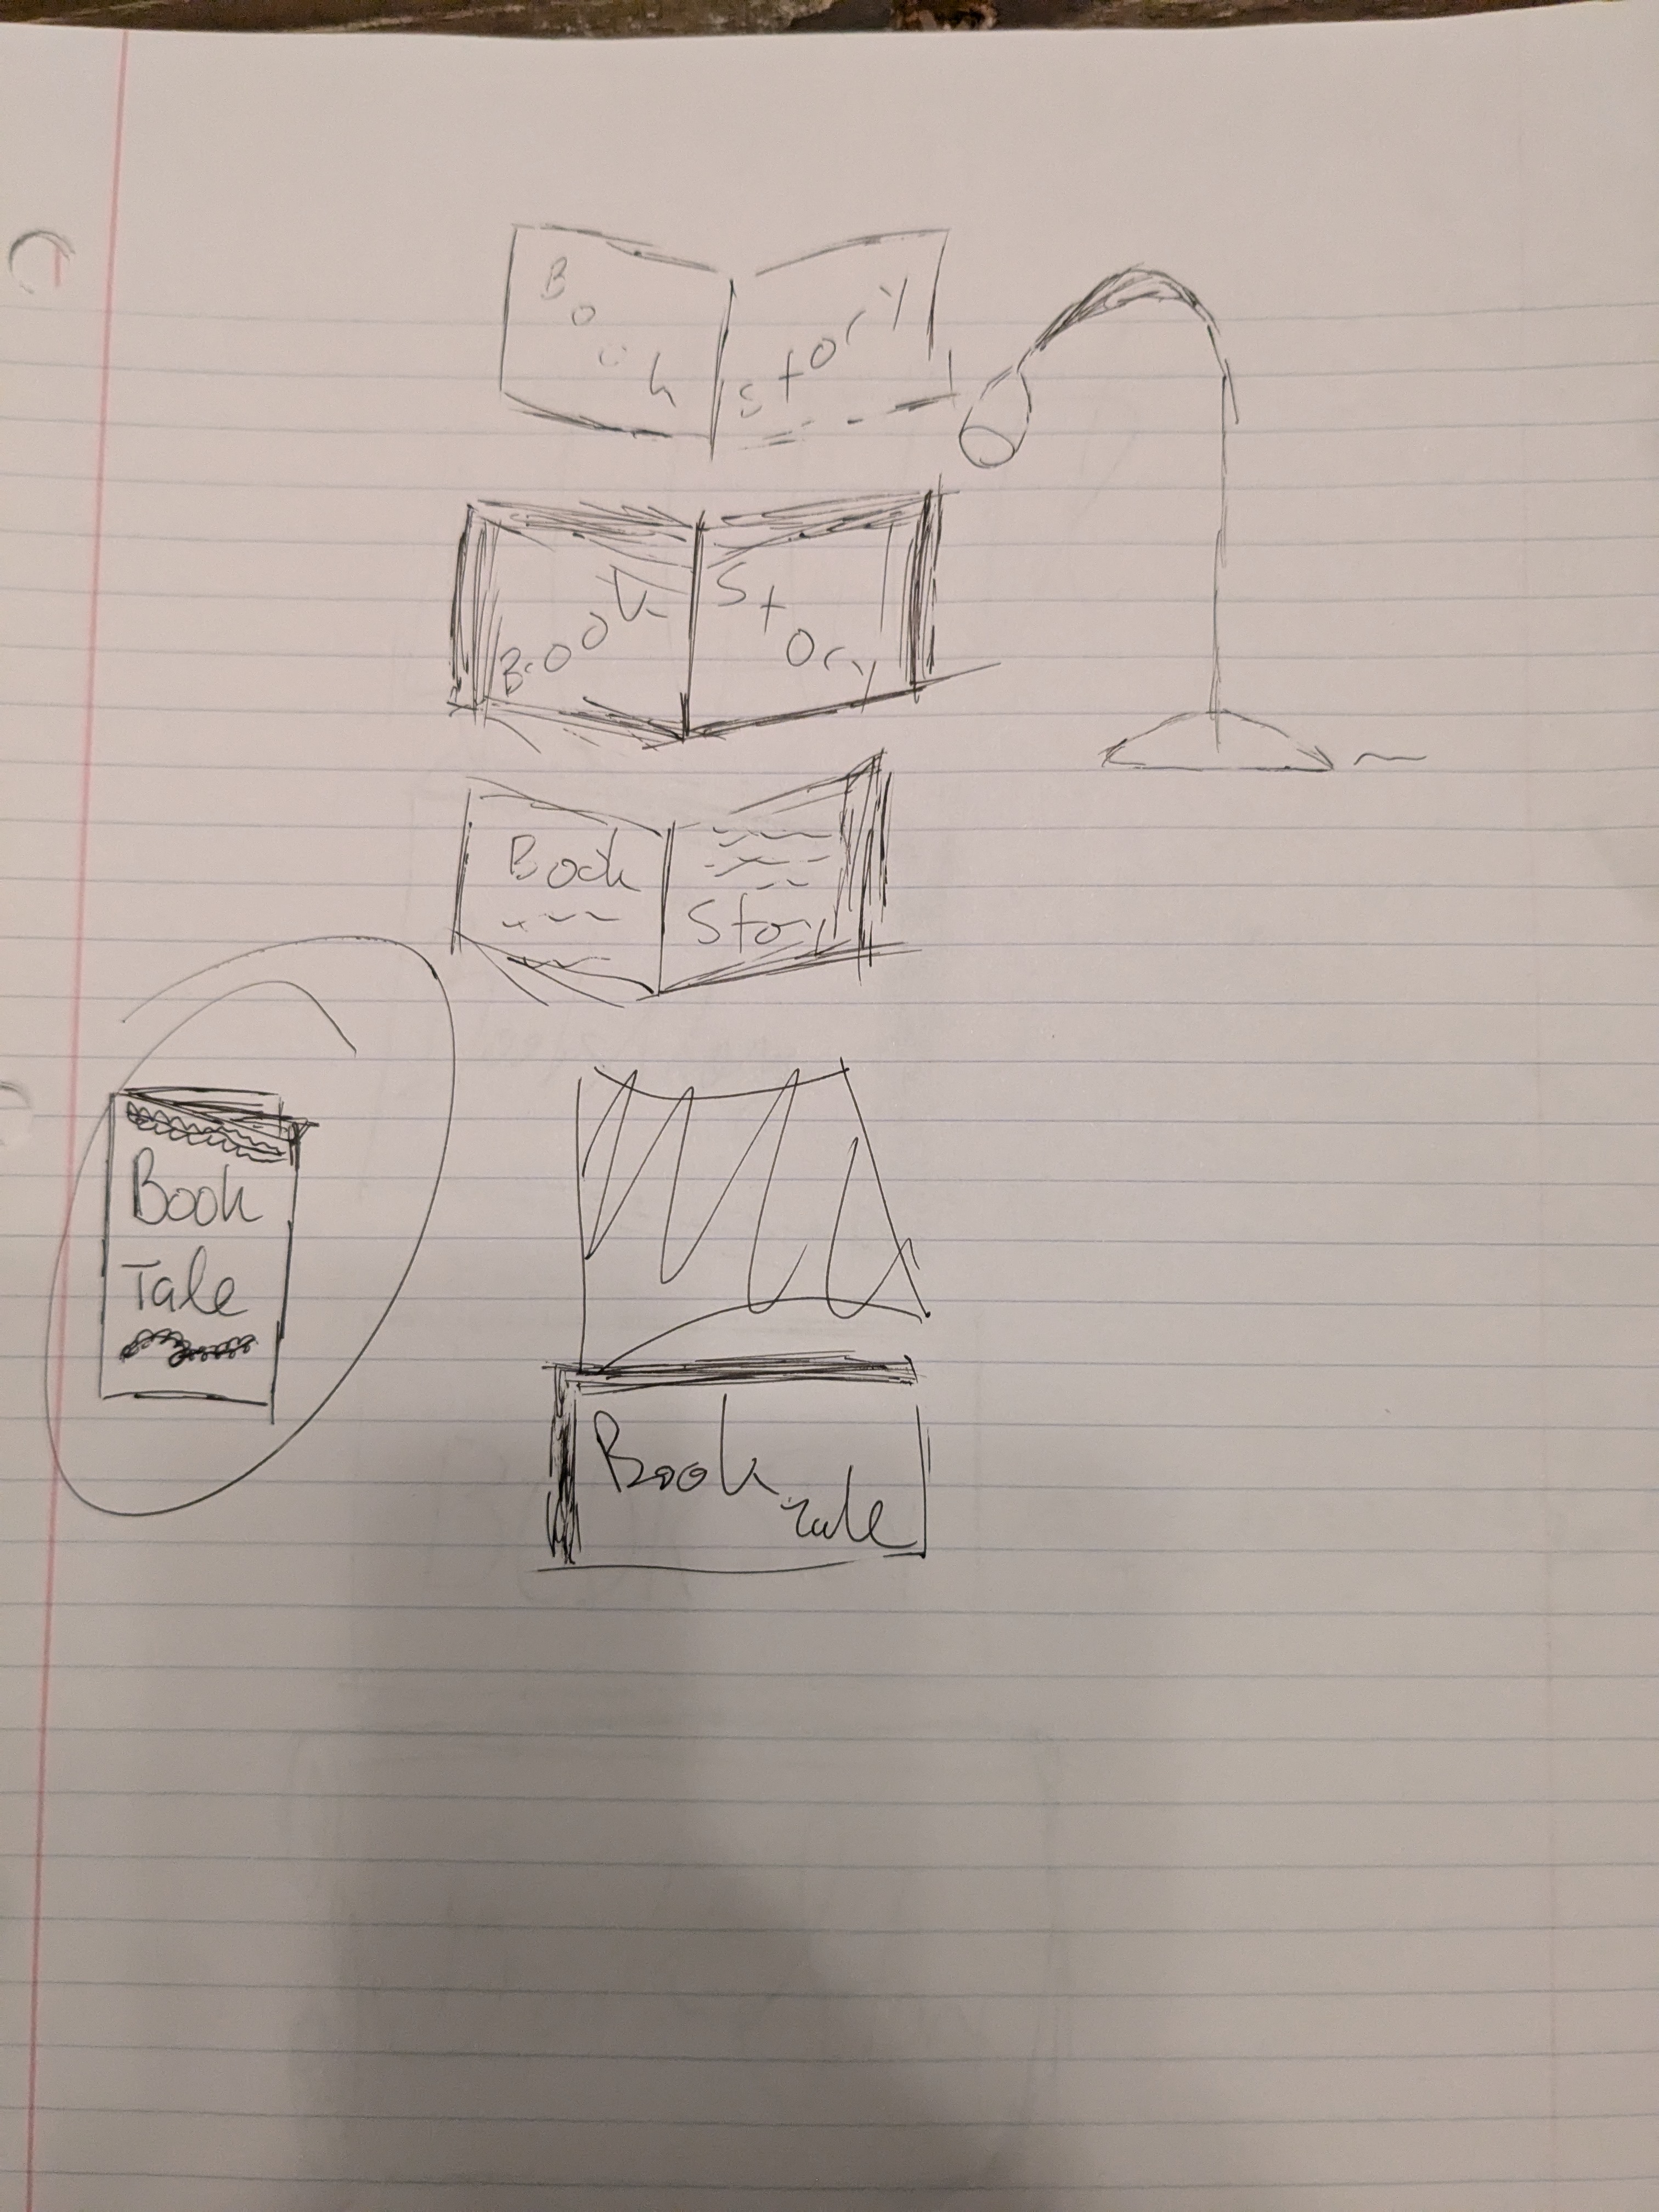 Book Story
Book Story
Book
Story
Book
Tale
Book
Tale